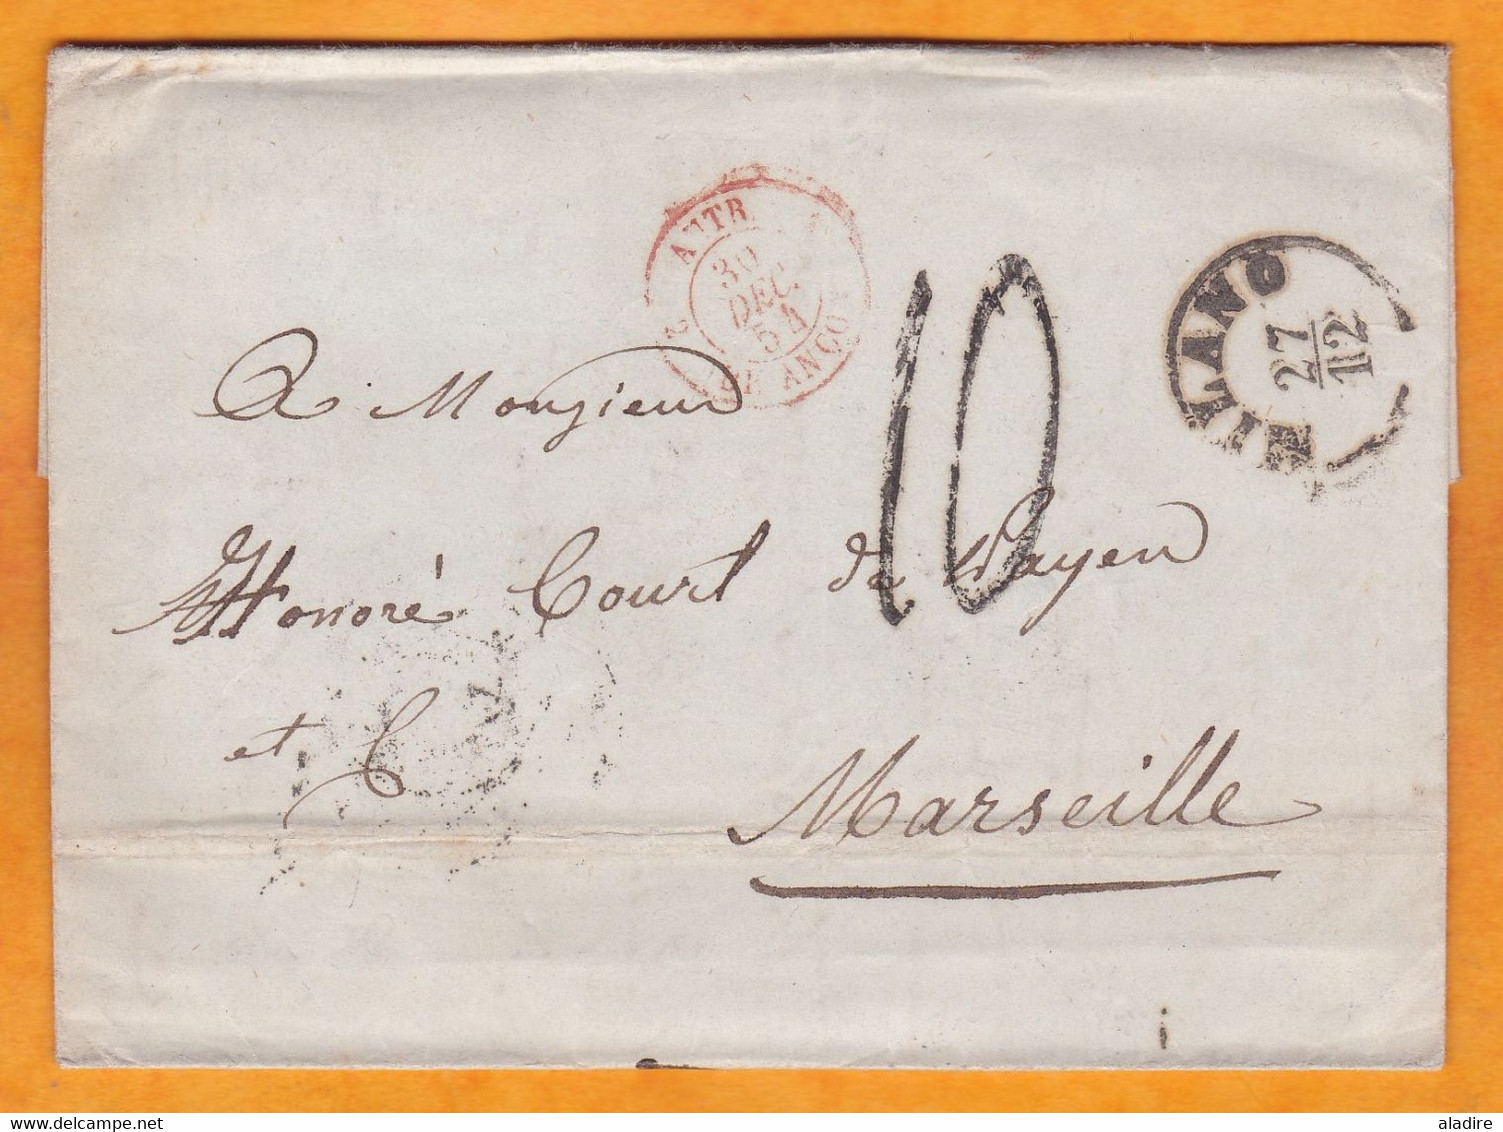 AUTR.
30
DEC.
54
2 BRIANÇON 2
MILANO
27
12
10
A Monsieur
Honoré Court de Payen
et C
Marseille
delcampe.net
aladire